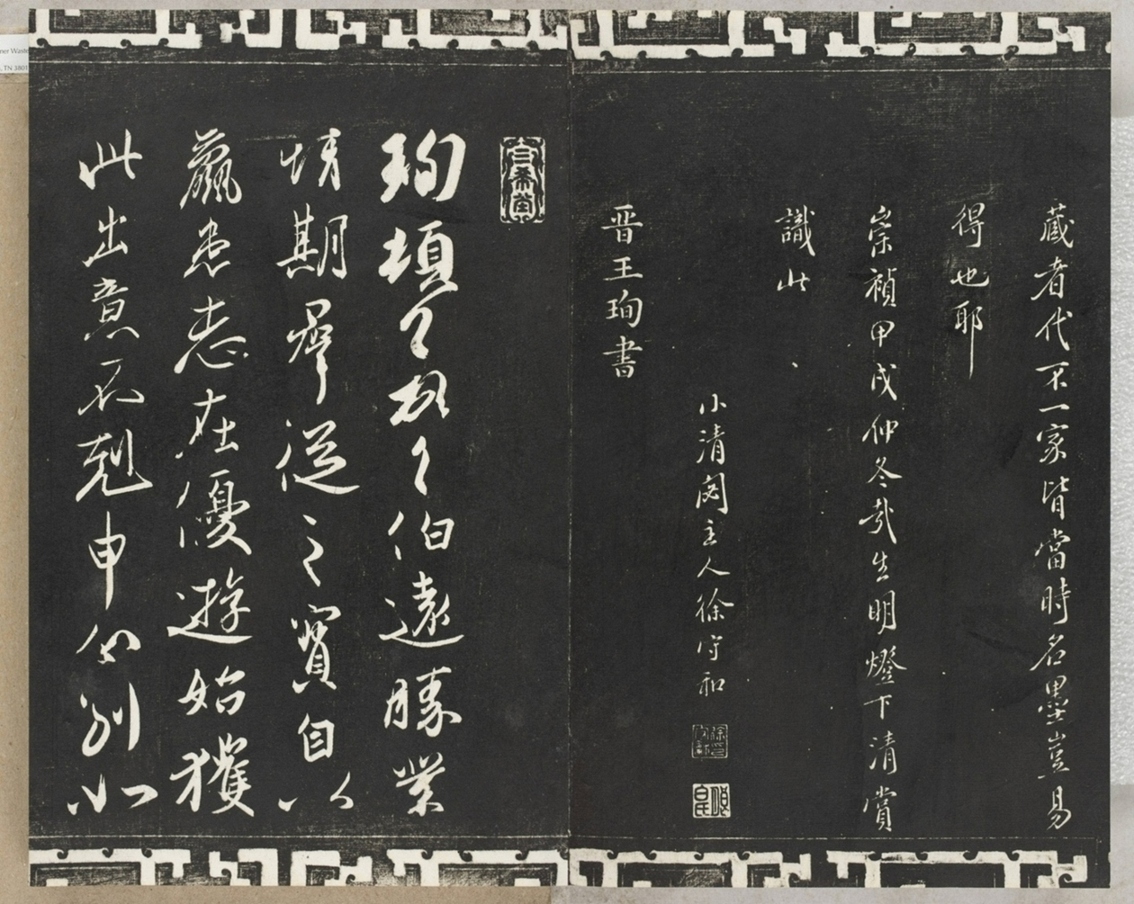 藏者代不一家皆當時名墨豈易
得也耶
崇禎甲戌仲冬哉生明燈下清賞
識此
小清閟主人徐守和
晋王珣書
三希堂
珣頓首頓首伯遠勝業
情期群從之寶自以
羸患志在優遊始獲
此出意不剋申分別如